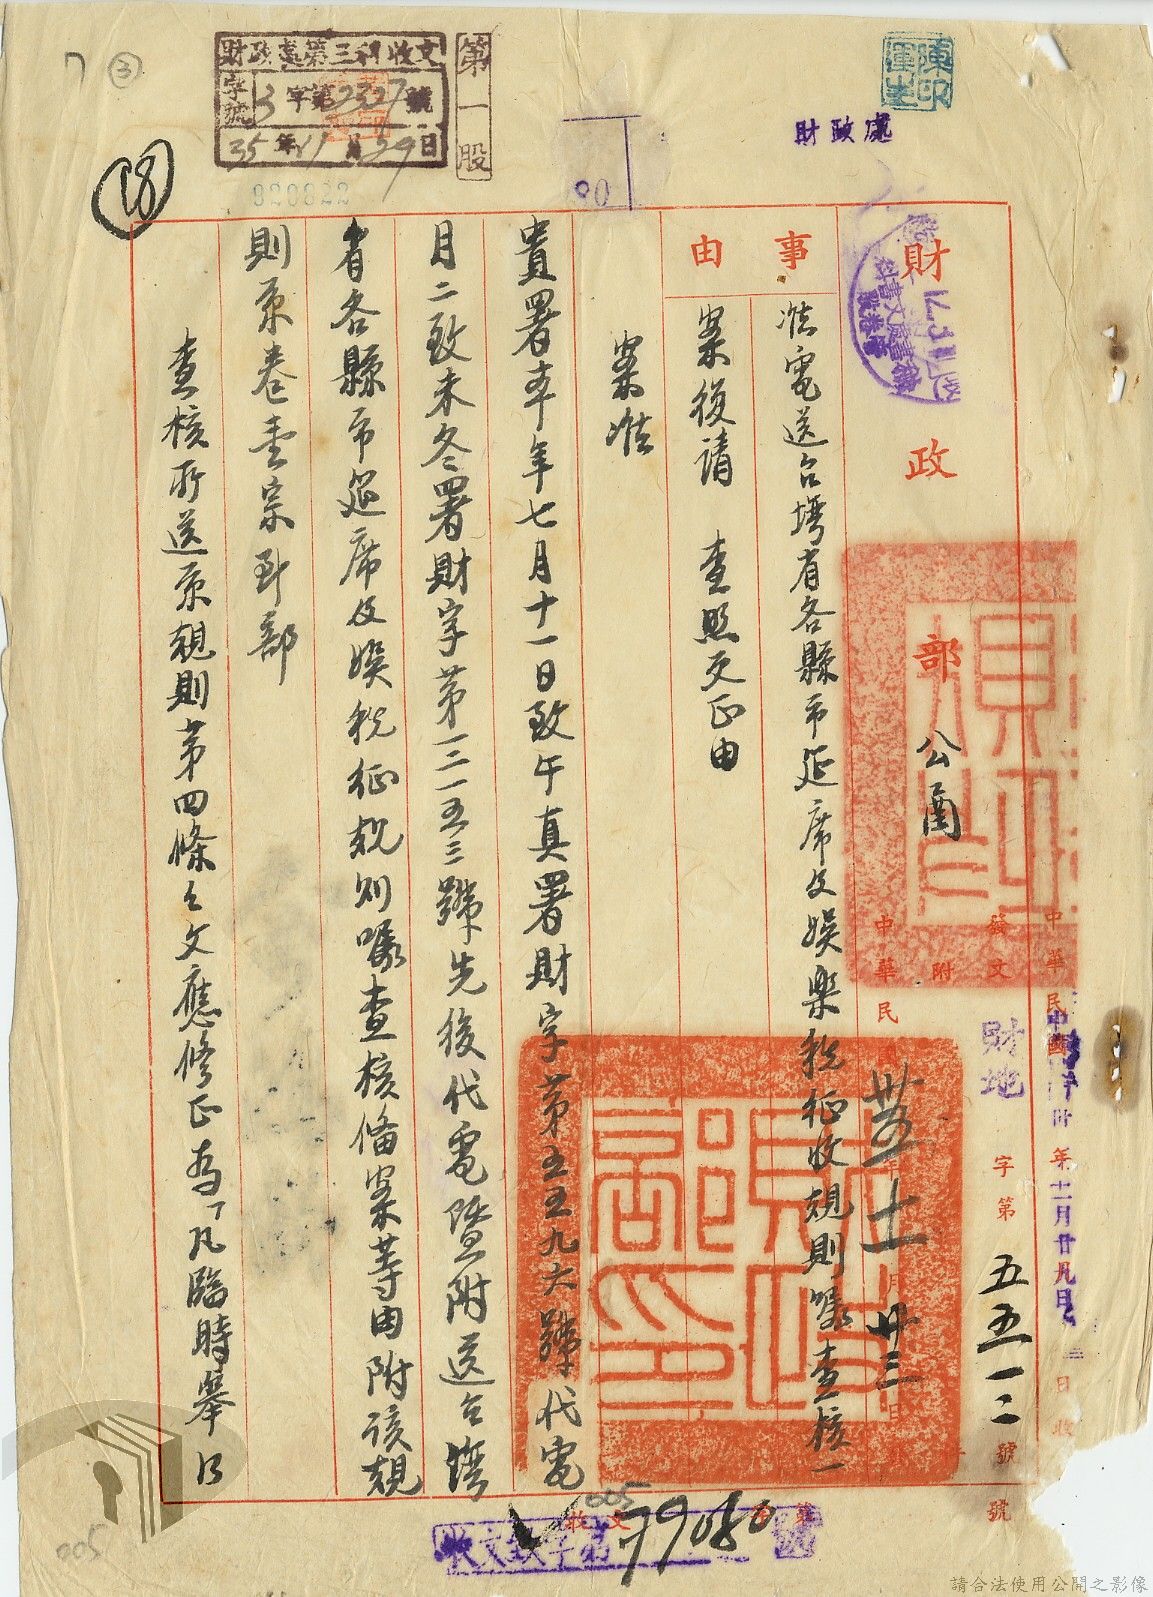 財政處第三科收文
字號 3字第2327號
35年11月29日
第一股
陳印
財政處
18
3
財政部公函
發文
附
財地字第五五一二號
中華民國卅五年十一月廿三日
中華民國卅五年十一月廿九日收
事由
准電送台灣省各縣市筵席及娛樂稅征收規則囑查核一
案復請 查照更正由
案准
貴署本年七月十一日致午真署財字第五五九六號代電
月二致未冬署財字第一三一五三號先後代電暨附送台灣
省各縣市筵席及娛稅征規則囑查核備案等由附該規
則原卷壹宗到部
查核所送原規則第四條之文應修正為「凡臨時舉行
收文 字第 號
79080
005
005
請合法使用公開之影像